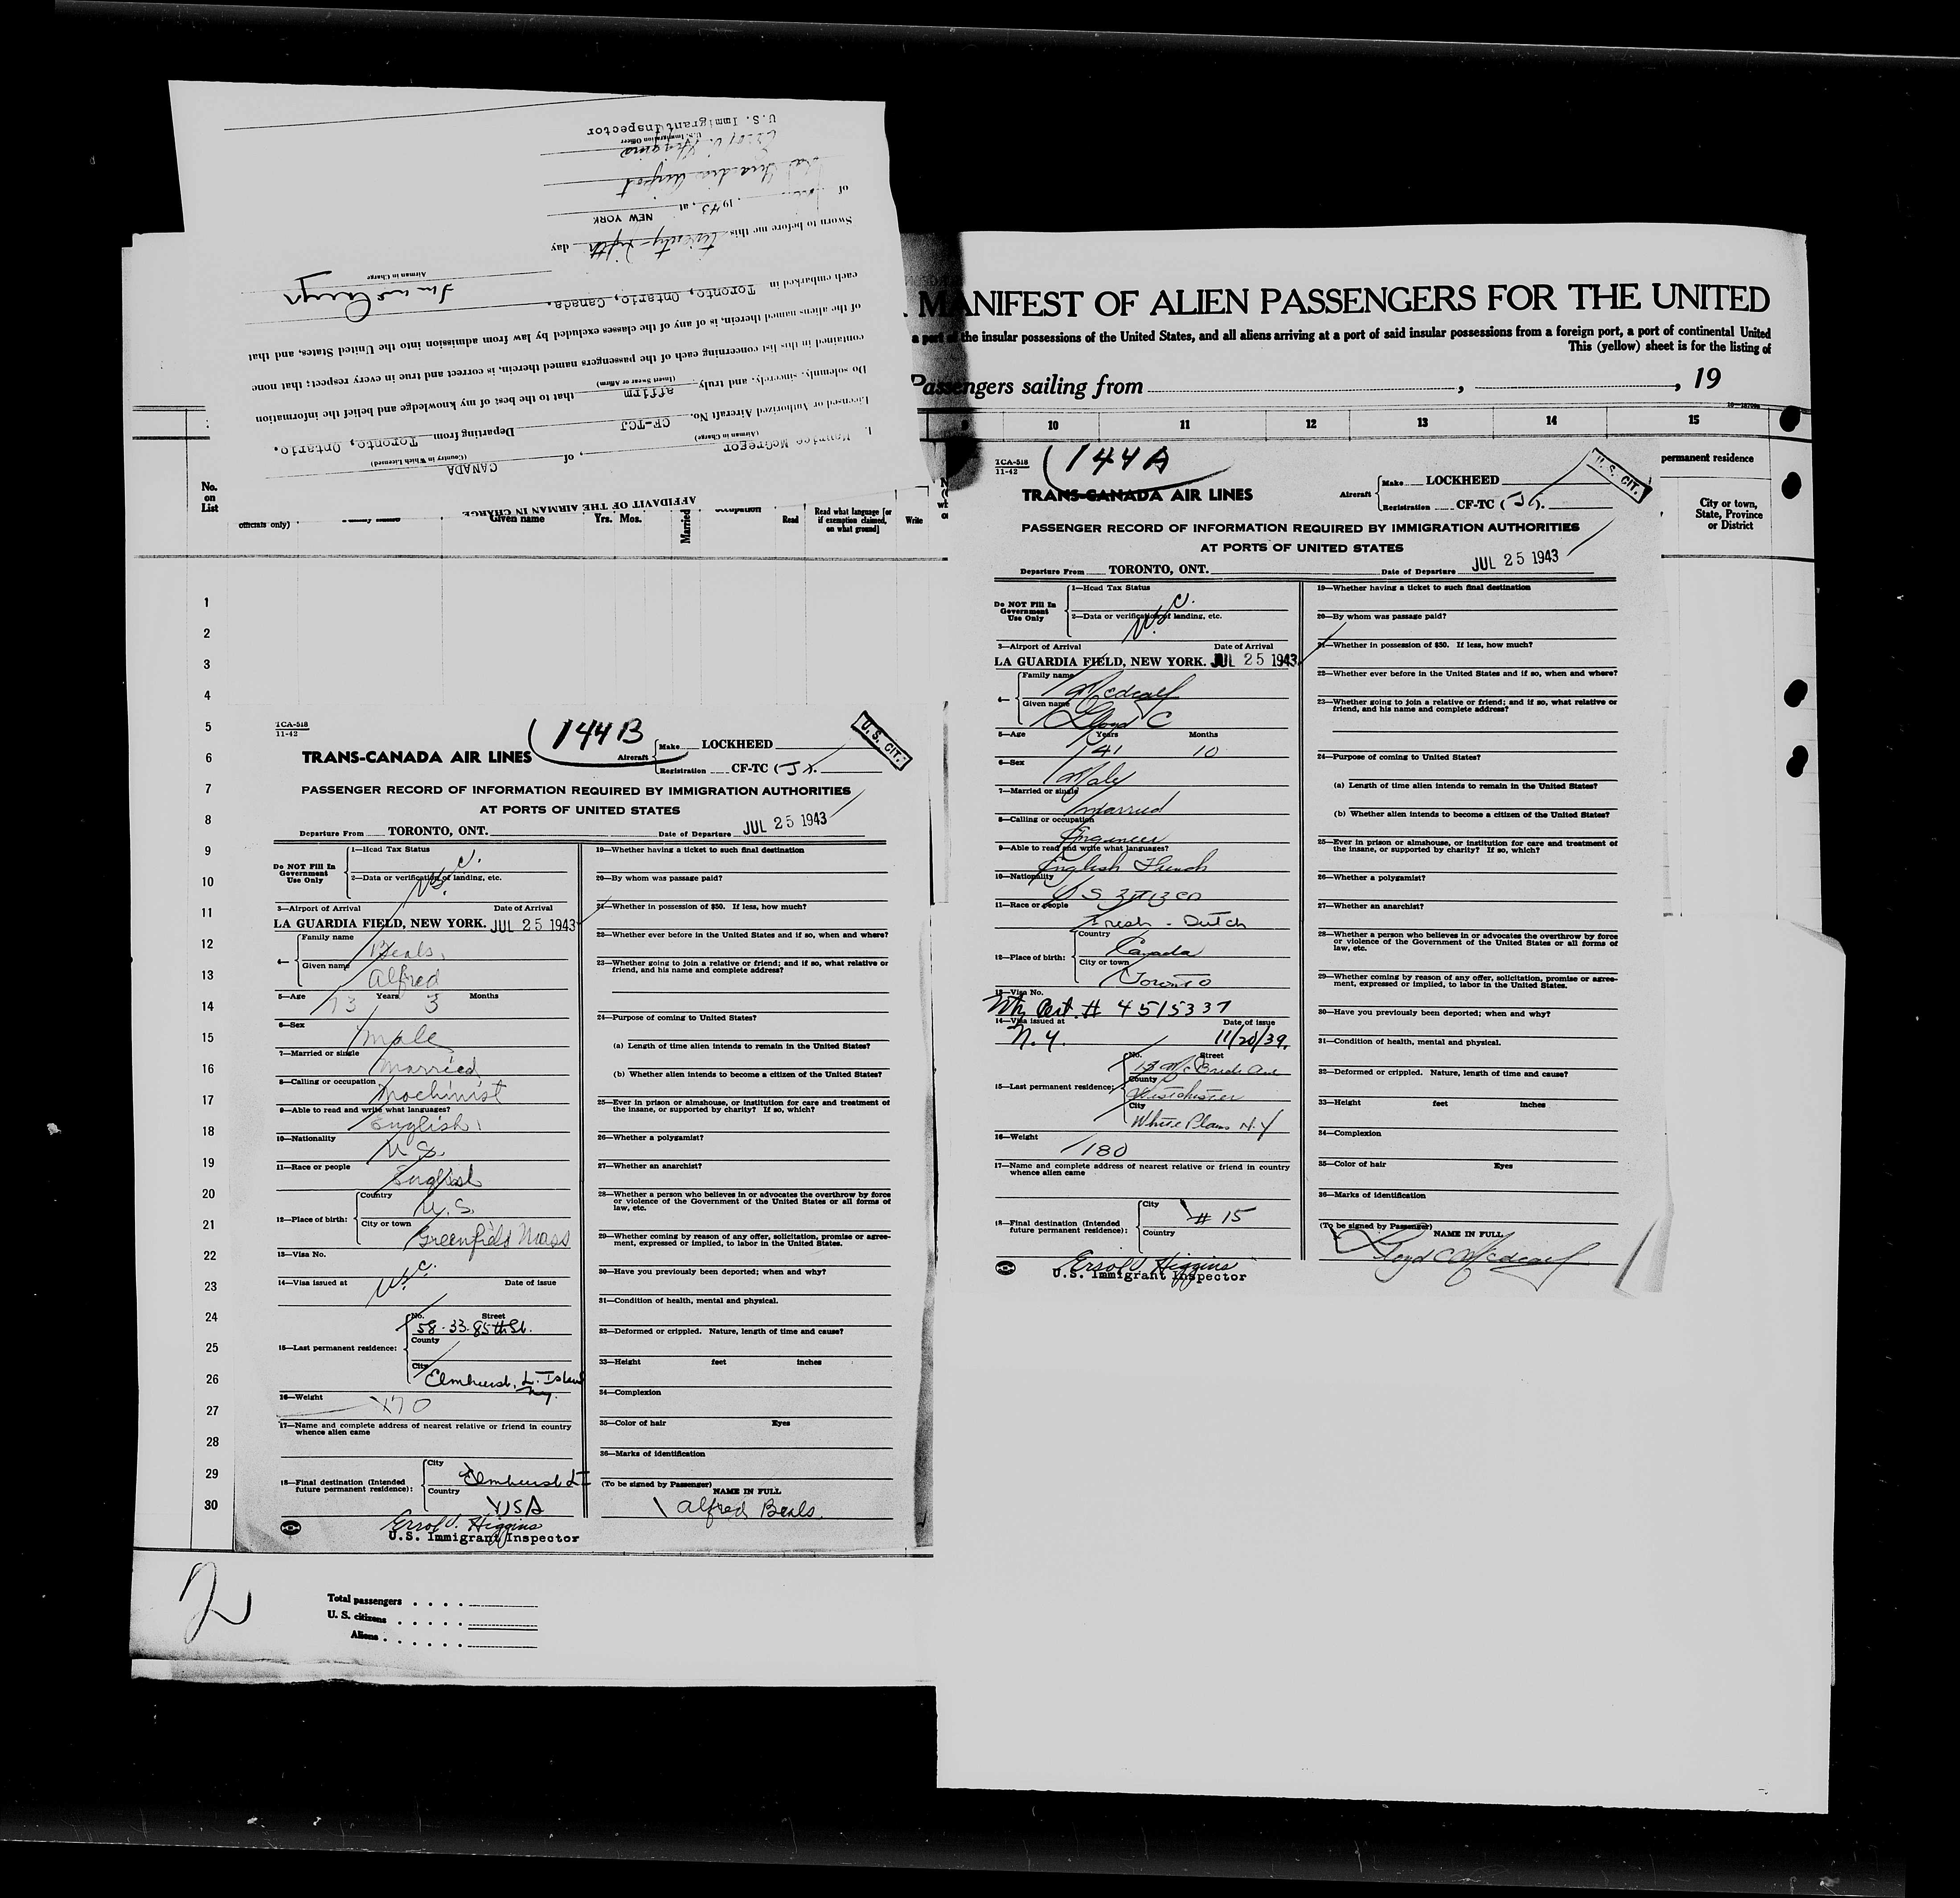 AFFIDAVIT OF THE AIRMAN IN CHARGE
I, Maurice McGregor, of CANADA
(Airman in Charge) (Country in Which Licensed)
Licensed or Authorized Aircraft No. CF-TCJ Departing from Toronto, Ontario.
Do solemnly, sincerely, and truly affirm that to the best of my knowledge and belief the information
(Insert Swear or Affirm)
contained in this list concerning each of the passengers named therein, is correct and true in every respect; that none
of the aliens named therein, is of any of the classes excluded by law from admission into the United States, and that
each embarked in Toronto, Ontario, Canada.
Airman in Charge
Sworn to before me this twenty-fifth day
of 1943, at NEW YORK
La Guardia Airport
Errol V. Higgins
U.S. Immigration Officer
U.S. Immigrant Inspector
MANIFEST OF ALIEN PASSENGERS FOR THE UNITED
a part of the insular possessions of the United States, and all aliens arriving at a port of said insular possessions from a foreign port, a port of continental United
This (yellow) sheet is for the listing of
Passengers sailing from , , 19
10 11 12 13 14 15
permanent residence
City or town,
State, Province
or District
No.
on
List
officials only)
Given name
Yrs. Mos.
Married
Read
Read what language [or
if exemption claimed,
on what ground]
Write
1
2
3
4
5
6
7
8
9
10
11
12
13
14
15
16
17
18
19
20
21
22
23
24
25
26
27
28
29
30
TCA-518
11-42
144B
U. S. CIT.
TRANS-CANADA AIR LINES
Aircraft Make LOCKHEED
Registration CF-TC (J).
PASSENGER RECORD OF INFORMATION REQUIRED BY IMMIGRATION AUTHORITIES
AT PORTS OF UNITED STATES
Departure From TORONTO, ONT. Date of Departure JUL 25 1943
Do NOT Fill In
Government
Use Only
1—Head Tax Status
2—Data or verification of landing, etc.
U.S.C.
3—Airport of Arrival Date of Arrival
LA GUARDIA FIELD, NEW YORK. JUL 25 1943
4— Family name Beals
Given name Alfred
5—Age 73 Years 3 Months
6—Sex male
7—Married or single married
8—Calling or occupation Machinist
9—Able to read and write what languages?
English
10—Nationality U.S.
11—Race or people English
12—Place of birth: Country U.S.
City or town Greenfield Mass
13—Visa No.
14—Visa issued at Date of issue
U.S.C.
15—Last permanent residence: No. Street
58-33-85th St.
County
City
Elmhurst, L. Island
N.Y.
16—Weight 170
17—Name and complete address of nearest relative or friend in country
whence alien came
18—Final destination (Intended
future permanent residence): City Elmhurst LI
Country USA
Errol V. Higgins
U.S. Immigrant Inspector
19—Whether having a ticket to such final destination
20—By whom was passage paid?
21—Whether in possession of $50. If less, how much?
22—Whether ever before in the United States and if so, when and where?
23—Whether going to join a relative or friend; and if so, what relative or
friend, and his name and complete address?
24—Purpose of coming to United States?
(a) Length of time alien intends to remain in the United States?
(b) Whether alien intends to become a citizen of the United States?
25—Ever in prison or almshouse, or institution for care and treatment of
the insane, or supported by charity? If so, which?
26—Whether a polygamist?
27—Whether an anarchist?
28—Whether a person who believes in or advocates the overthrow by force
or violence of the Government of the United States or all forms of
law, etc.
29—Whether coming by reason of any offer, solicitation, promise or agree-
ment, expressed or implied, to labor in the United States.
30—Have you previously been deported; when and why?
31—Condition of health, mental and physical.
32—Deformed or crippled. Nature, length of time and cause?
33—Height feet inches
34—Complexion
35—Color of hair Eyes
36—Marks of identification
(To be signed by Passenger)
NAME IN FULL
Alfred Beals
2
Total passengers
U. S. citizens
Aliens
TCA-518
11-42
144A
U. S. CIT.
TRANS-CANADA AIR LINES
Aircraft Make LOCKHEED
Registration CF-TC (J).
PASSENGER RECORD OF INFORMATION REQUIRED BY IMMIGRATION AUTHORITIES
AT PORTS OF UNITED STATES
Departure From TORONTO, ONT. Date of Departure JUL 25 1943
Do NOT Fill In
Government
Use Only
1—Head Tax Status
2—Data or verification of landing, etc.
U.S.C.
3—Airport of Arrival Date of Arrival
LA GUARDIA FIELD, NEW YORK. JUL 25 1943
4— Family name Medcalf
Given name Lloyd C
5—Age Years Months
41 10
6—Sex Male
7—Married or single married
8—Calling or occupation Engineer
9—Able to read and write what languages?
English French
10—Nationality U S Citizen
11—Race or people
Irish - Dutch
12—Place of birth: Country Canada
City or town Toronto
13—Visa No.
Ntz Cert. # 4515337
14—Visa issued at Date of issue
N.Y. 11/20/39.
15—Last permanent residence: No. Street
13 McBride Ave
County
Westchester
City
White Plains N.Y
16—Weight 180
17—Name and complete address of nearest relative or friend in country
whence alien came
18—Final destination (Intended
future permanent residence): City # 15
Country
Errol V. Higgins
U.S. Immigrant Inspector
19—Whether having a ticket to such final destination
20—By whom was passage paid?
21—Whether in possession of $50. If less, how much?
22—Whether ever before in the United States and if so, when and where?
23—Whether going to join a relative or friend; and if so, what relative or
friend, and his name and complete address?
24—Purpose of coming to United States?
(a) Length of time alien intends to remain in the United States?
(b) Whether alien intends to become a citizen of the United States?
25—Ever in prison or almshouse, or institution for care and treatment of
the insane, or supported by charity? If so, which?
26—Whether a polygamist?
27—Whether an anarchist?
28—Whether a person who believes in or advocates the overthrow by force
or violence of the Government of the United States or all forms of
law, etc.
29—Whether coming by reason of any offer, solicitation, promise or agree-
ment, expressed or implied, to labor in the United States.
30—Have you previously been deported; when and why?
31—Condition of health, mental and physical.
32—Deformed or crippled. Nature, length of time and cause?
33—Height feet inches
34—Complexion
35—Color of hair Eyes
36—Marks of identification
(To be signed by Passenger)
NAME IN FULL
Lloyd C Medcalf